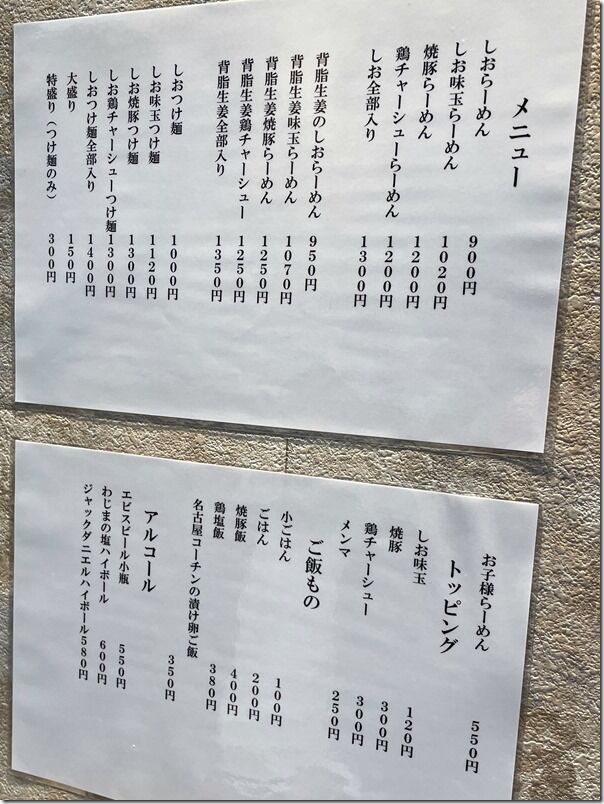 メニュー
しおらーめん 900円
しお味玉らーめん 1020円
焼豚らーめん 1200円
鶏チャーシューらーめん 1200円
しお全部入り 1300円
背脂生姜のしおらーめん 950円
背脂生姜味玉らーめん 1070円
背脂生姜焼豚らーめん 1250円
背脂生姜鶏チャーシュー 1250円
背脂生姜全部入り 1350円
しおつけ麺 1000円
しお味玉つけ麺 1120円
しお焼豚つけ麺 1300円
しお鶏チャーシューつけ麺 1300円
しおつけ麺全部入り 1400円
大盛り 150円
特盛り（つけ麺のみ） 300円
お子様らーめん 550円
トッピング
しお味玉 120円
焼豚 300円
鶏チャーシュー 300円
メンマ 250円
ご飯もの
小ごはん 100円
ごはん 200円
焼豚飯 400円
鶏塩飯 380円
名古屋コーチンの漬け卵ご飯 350円
アルコール
エビスビール小瓶 550円
わじまの塩ハイボール 600円
ジャックダニエルハイボール580円